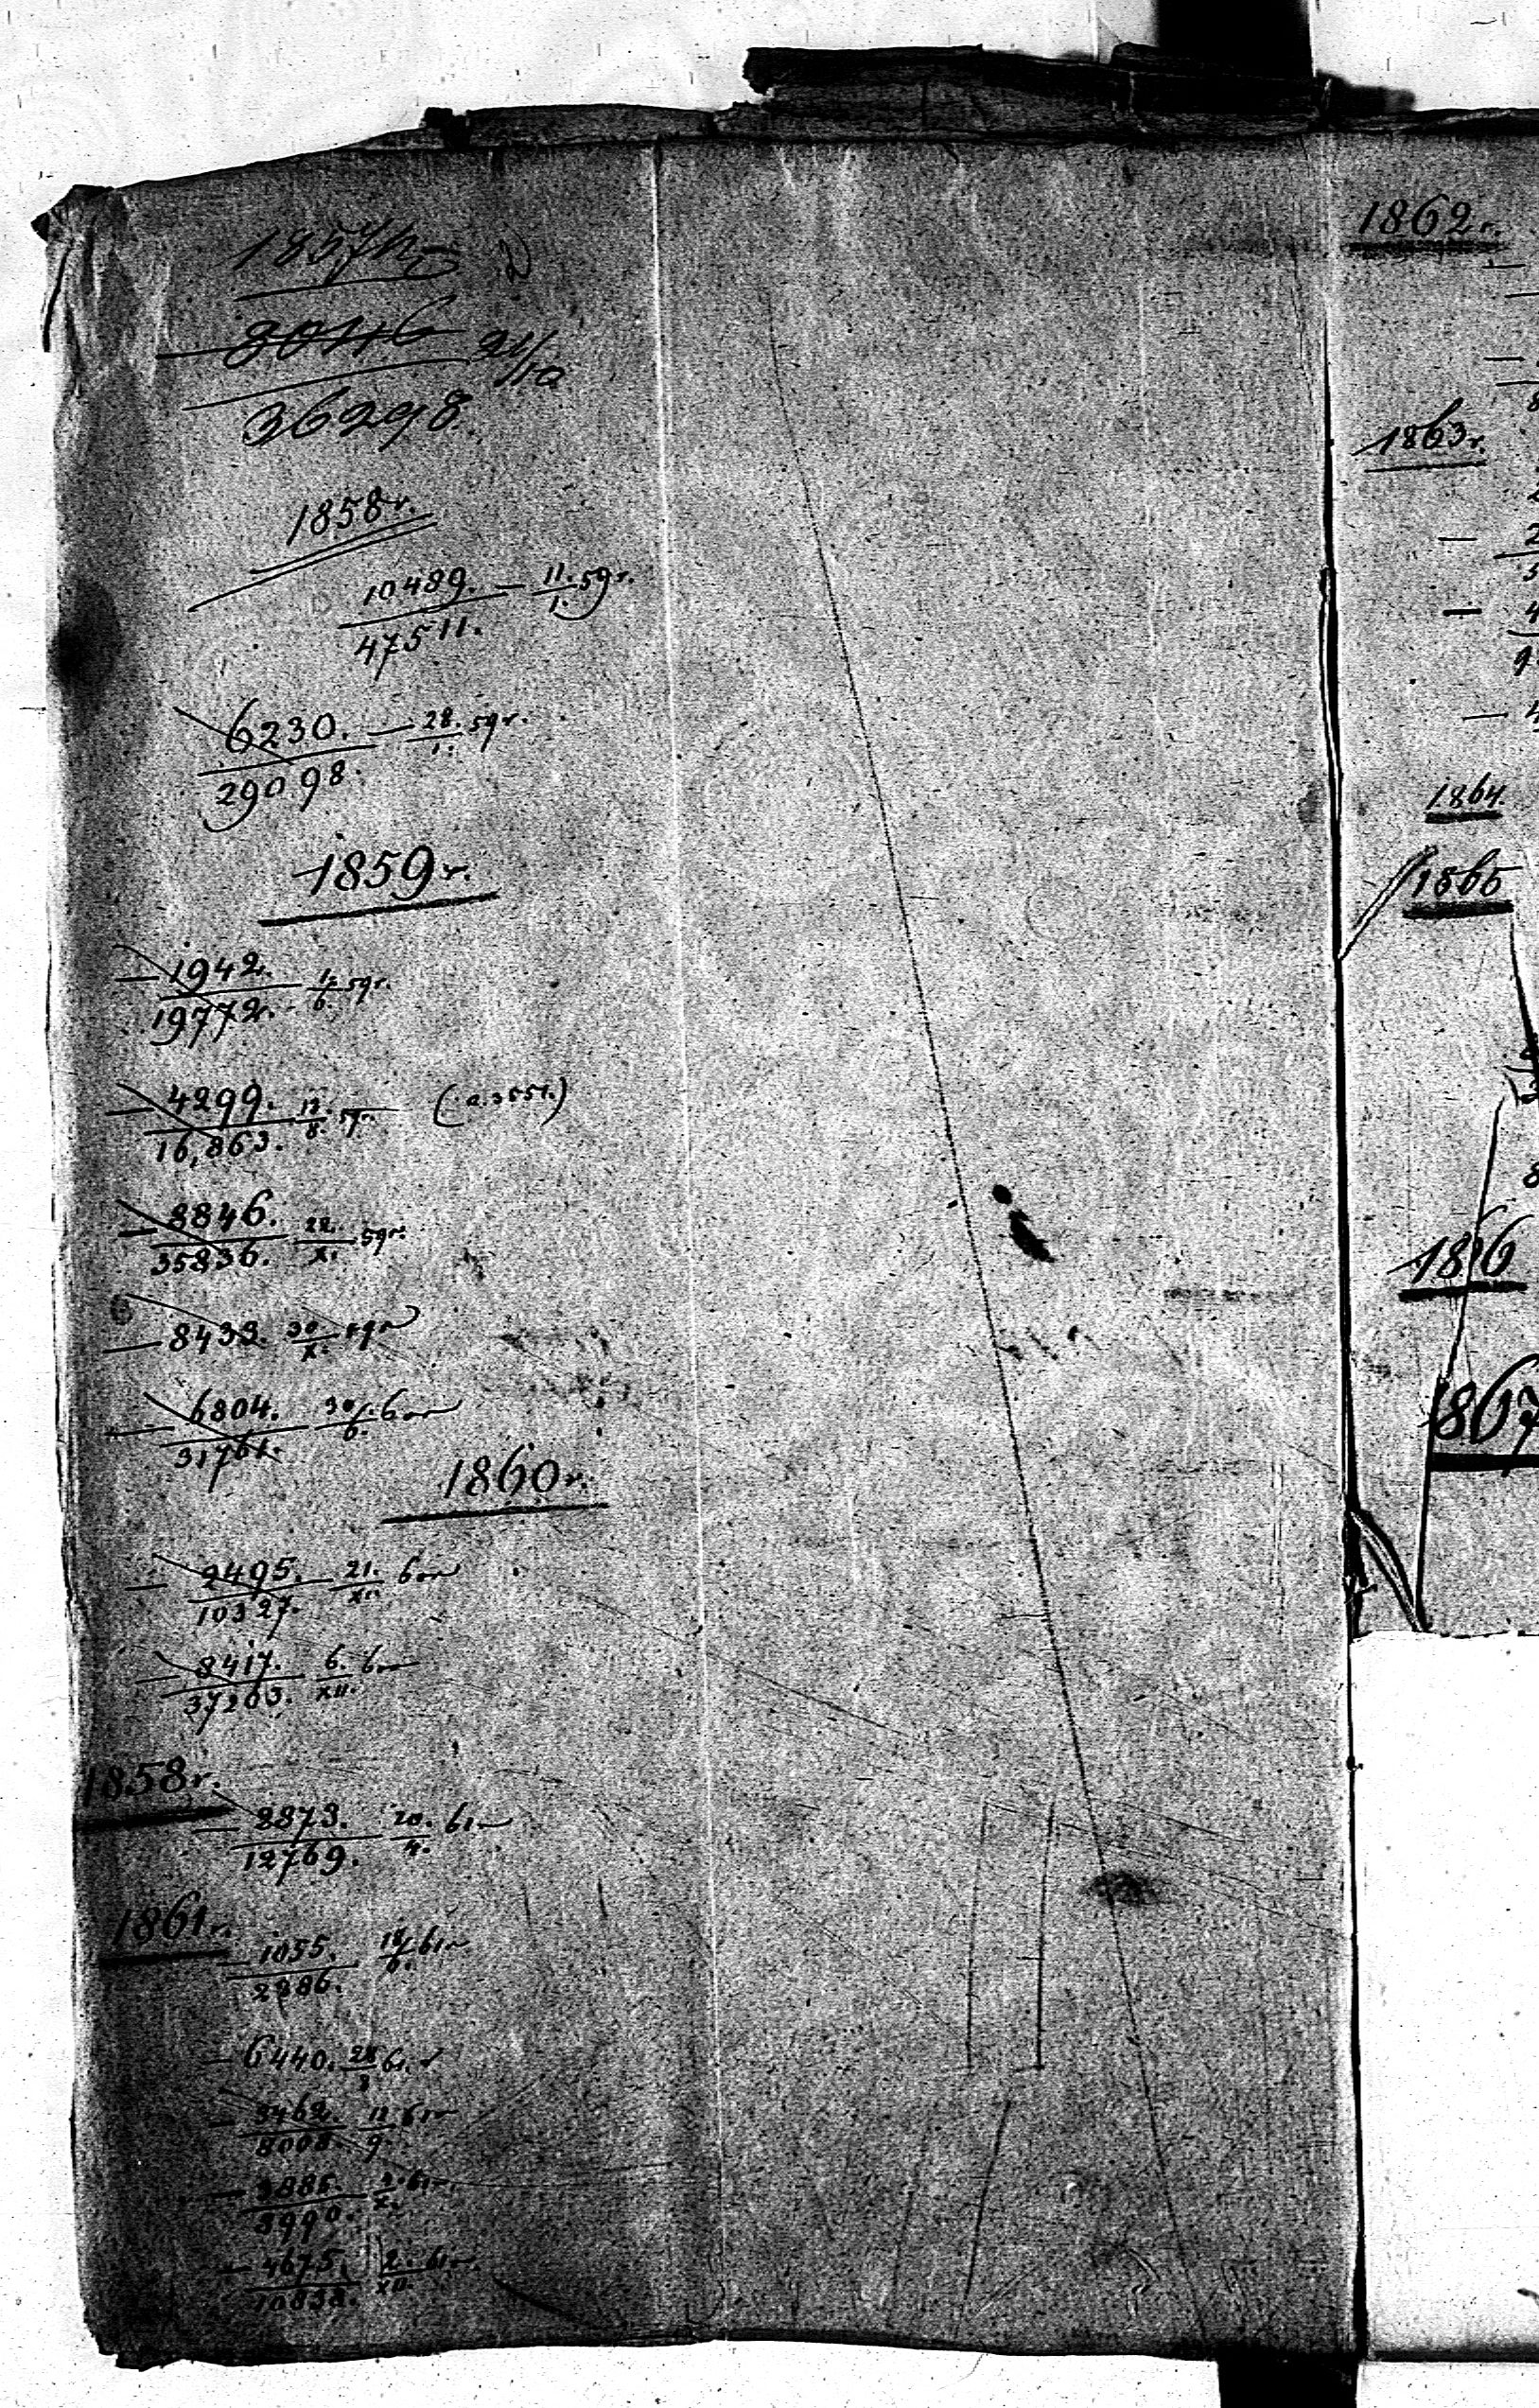 1857 r.
8046 21/10
36298.
1858 r.
10489. — 11./1. 59 r.
47511.
6230. — 28./1. 59 r.
29098.
1859 r.
— 1942. 59 r.
19772.
— 4299. 12./8. 59 r. (a. 3551.)
16,863.
— 8846. 22./XI. 59 r.
35836.
— 8433. 30/X. 59 r.
— 6804. 30/6. 60 r.
31761.
1860 r.
— 2495. 21./XI. 60 r.
10327.
— 8417. 6./XII. 60 r.
37203.
1858 r.
— 2873. 20./4. 61 r.
12769.
1861 r.
— 1055. 18/6. 61 r.
2886.
— 6440. 28/8 61 r.
— 3462. 11/9. 61 r.
8008.
— 3886. 61 r.
8990.
— 4675. 2./XII. 61 r.
10838.
1862 r.
1863 r.
1864.
1865
1866
1867